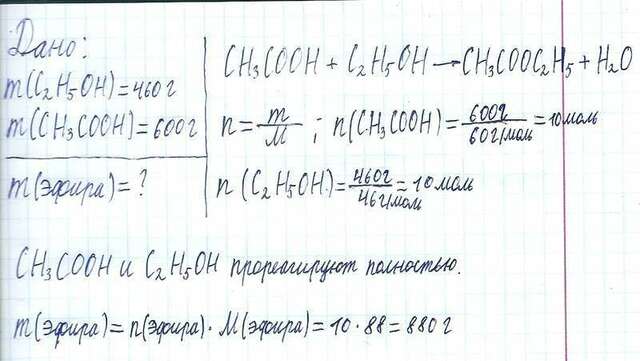 Дано:
m(C₂H₅OH)=460г
m(CH₃COOH)=600г
m(эфира)=?
CH₃COOH + C₂H₅OH → CH₃COOC₂H₅ + H₂O
n = m/M ; n(CH₃COOH) = 600г/60г/моль = 10моль
n (C₂H₅OH) = 460г/46г/моль = 10моль
CH₃COOH и C₂H₅OH прореагируют полностью.
m(эфира) = n(эфира) · M(эфира) = 10 · 88 = 880 г